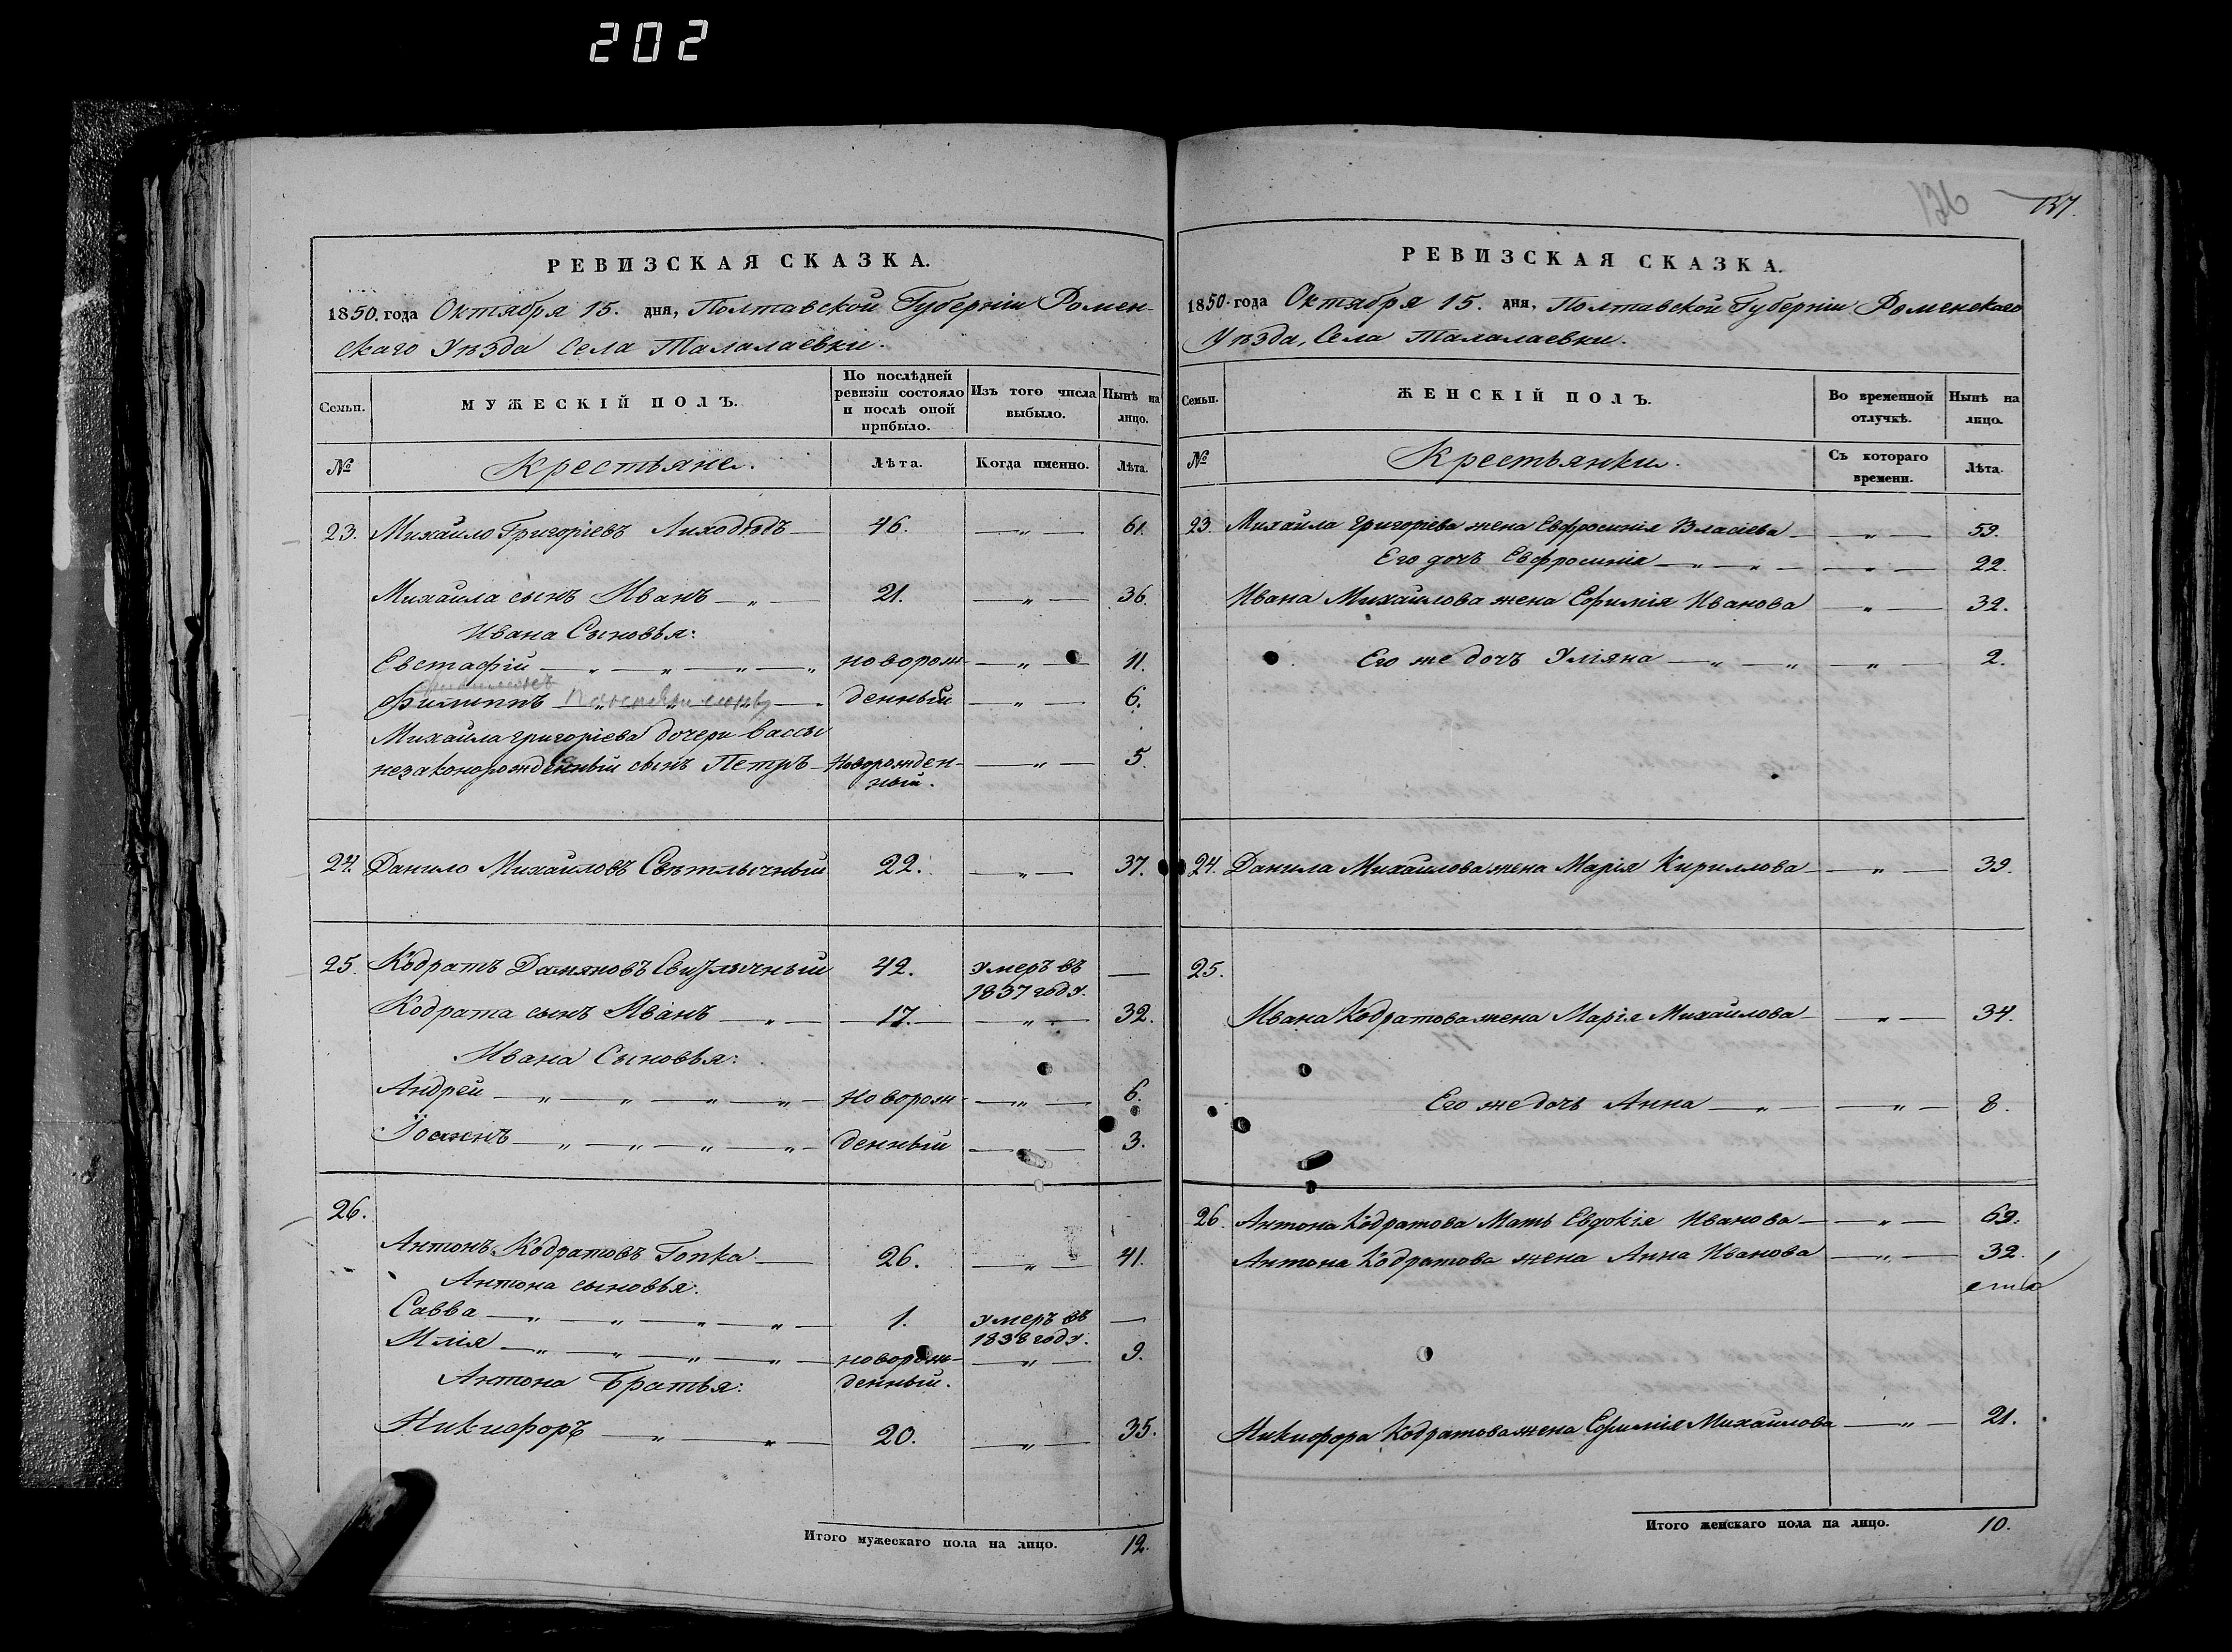 202
РЕВИЗСКАЯ СКАЗКА.
1850. года Октября 15. дня, Полтавской Губерніи Ромен-
скаго Уѣзда Села Талалаевки.
Семьи.
МУЖЕСКІЙ ПОЛЪ.
По послѣдней ревизіи состояло и послѣ оной прибыло.
Изъ того числа выбыло.
Нынѣ на лицо.
№ Крестьяне. Лѣта. Когда именно. Лѣта.
23. Михайло Григоріевъ Лиходѣдъ — 46. — „ — 61.
Михайла сынъ Иванъ — „ — 21. — „ — 36.
Ивана Сыновья:
Евстафій — „ — „ — „ — „ новорож- — „ — 11.
Филиппъ — „ — „ — „ денный — „ — 6.
Михайла Григоріева дочери Вассы
незаконорожденный сынъ Петръ — Новорожден- — „ — 5.
ный.
24. Данило Михайловъ Свѣтлычный 22. — „ — 37.
25. Кодратъ Дамяновъ Свитлычный 42. умеръ въ —
1837 году.
Кодрата сынъ Иванъ — „ — 17. — „ — 32.
Ивана Сыновья:
Андрей — „ — „ — „ — „ — новорож- — „ — 6.
Іоаннъ — „ — „ — „ — „ — денный — „ — 3.
26.
Антонъ Кодратовъ Гопка — 26. — „ — 41.
Антона сыновья:
Савва — „ — „ — „ — „ — 1. умеръ въ —
1838 году.
Илія — „ — „ — „ — „ — новорож- — „ — 9.
Антона Братья: денный.
Никифоръ — „ — „ — 20. — „ — 35.
Итого мужескаго пола на лицо. 12.
136 137.
РЕВИЗСКАЯ СКАЗКА.
1850. года Октября 15. дня, Полтавской Губерніи Роменскаго
Уѣзда, Села Талалаевки.
Семьи.
ЖЕНСКІЙ ПОЛЪ.
Во временной отлучкѣ.
Нынѣ на лицо.
№ Крестьянки. Съ котораго времени. Лѣта.
23. Михайла Григоріева жена Евфросинія Власіева — „ — 53.
Его дочь Евфросинія — „ — „ — „ — 22.
Ивана Михайлова жена Ефимія Иванова — „ — 32.
Его же дочь Уліяна — „ — „ — „ — 2.
24. Данила Михайлова жена Марія Кириллова — „ — 39.
25.
Ивана Кодратова жена Марія Михайлова — „ — 34.
Его же дочь Анна — „ — „ — 8.
26. Антона Кодратова Мать Евдокія Иванова — „ — 69.
Антона Кодратова жена Анна Иванова — „ — 32.
Никифора Кодратова жена Ефимія Михайлова — „ — 21.
Итого женскаго пола на лицо. 10.